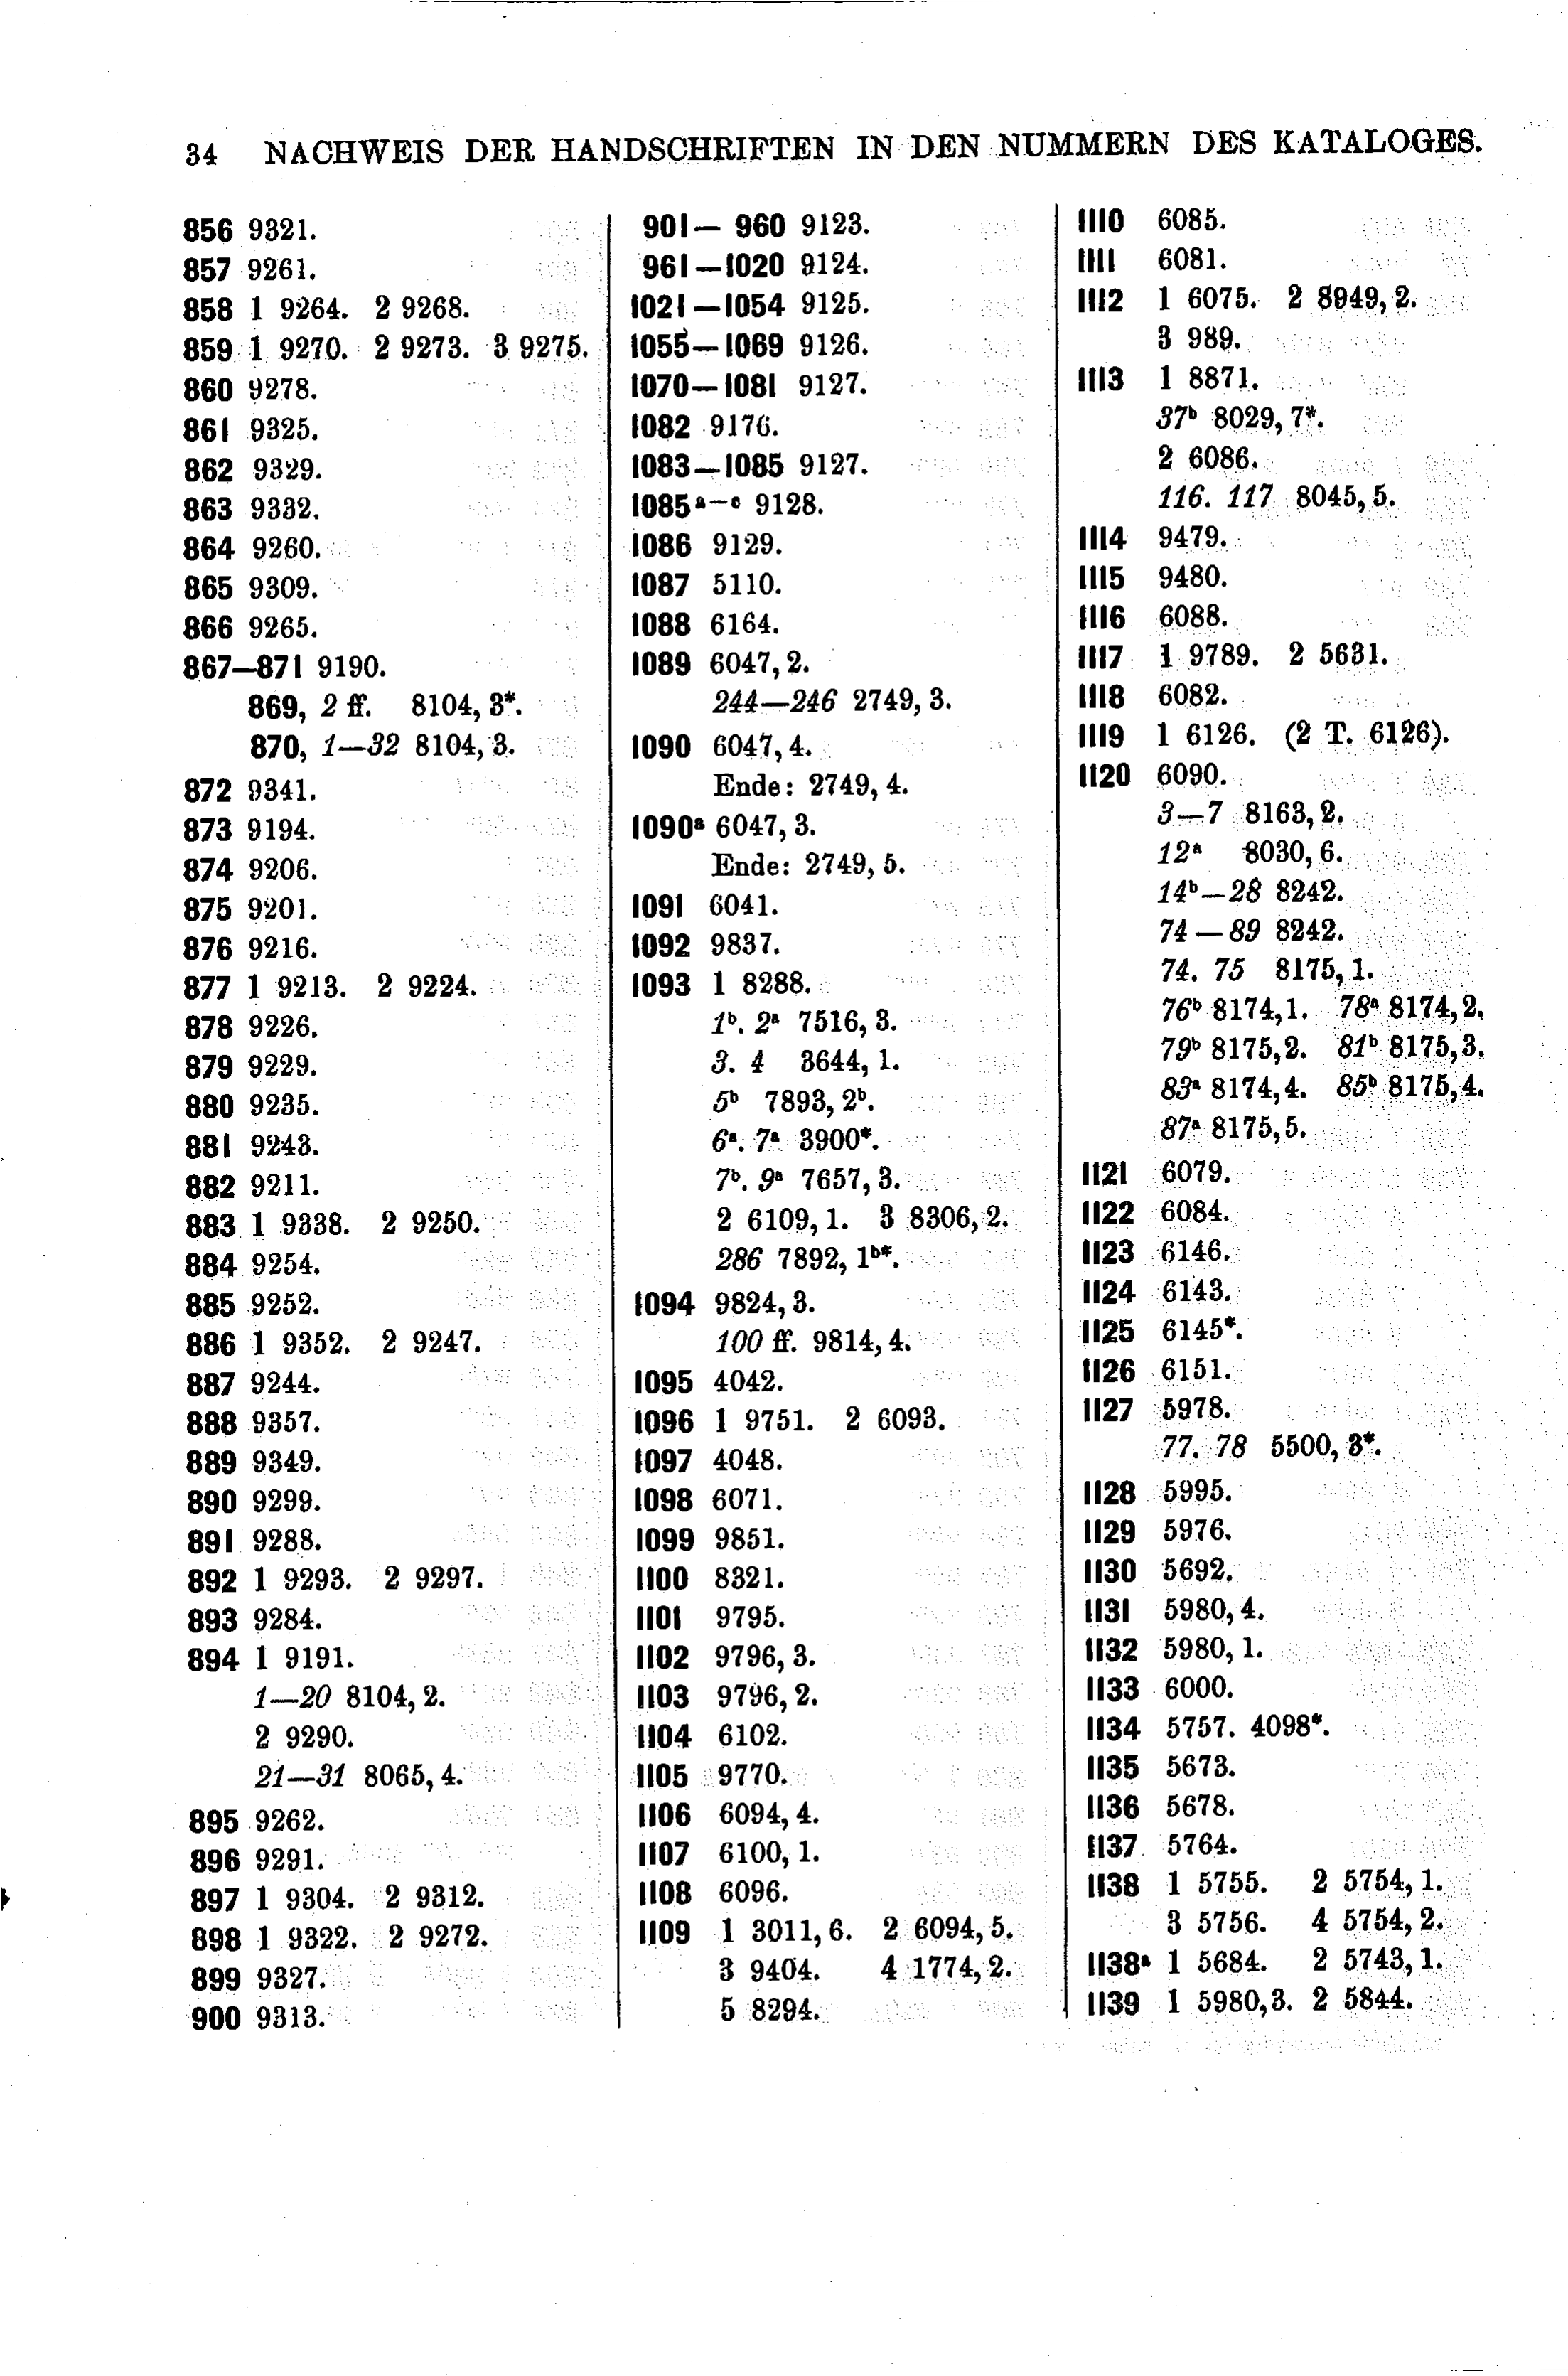 34 NACHWEIS DER HANDSCHRIFTEN IN DEN NUMMERN DES KATALOGES.
856 9321.
857 9261.
858 1 9264. 2 9268.
859 1 9270. 2 9273. 3 9275.
860 9278.
861 9325.
862 9329.
863 9332.
864 9260.
865 9309.
866 9265.
867—871 9190.
869, 2 ff. 8104, 3*.
870, 1—32 8104, 3.
872 9341.
873 9194.
874 9206.
875 9201.
876 9216.
877 1 9213. 2 9224.
878 9226.
879 9229.
880 9235.
881 9243.
882 9211.
883 1 9338. 2 9250.
884 9254.
885 9252.
886 1 9352. 2 9247.
887 9244.
888 9357.
889 9349.
890 9299.
891 9288.
892 1 9293. 2 9297.
893 9284.
894 1 9191.
1—20 8104, 2.
2 9290.
21—31 8065, 4.
895 9262.
896 9291.
897 1 9304. 2 9312.
898 1 9322. 2 9272.
899 9327.
900 9313.
901— 960 9123.
961—1020 9124.
1021—1054 9125.
1055—1069 9126.
1070—1081 9127.
1082 9176.
1083—1085 9127.
1085ᵃ⁻ᶜ 9128.
1086 9129.
1087 5110.
1088 6164.
1089 6047, 2.
244—246 2749, 3.
1090 6047, 4.
Ende: 2749, 4.
1090ᵃ 6047, 3.
Ende: 2749, 5.
1091 6041.
1092 9837.
1093 1 8288.
1ᵇ. 2ᵃ 7516, 3.
3. 4 3644, 1.
5ᵇ 7893, 2ᵇ.
6ᵃ. 7ᵃ 3900*.
7ᵇ. 9ᵃ 7657, 3.
2 6109, 1. 3 8306, 2.
286 7892, 1ᵇ*.
1094 9824, 3.
100 ff. 9814, 4.
1095 4042.
1096 1 9751. 2 6093.
1097 4048.
1098 6071.
1099 9851.
1100 8321.
1101 9795.
1102 9796, 3.
1103 9796, 2.
1104 6102.
1105 9770.
1106 6094, 4.
1107 6100, 1.
1108 6096.
1109 1 3011, 6. 2 6094, 5.
3 9404. 4 1774, 2.
5 8294.
1110 6085.
1111 6081.
1112 1 6075. 2 8949, 2.
3 989.
1113 1 8871.
37ᵇ 8029, 7*.
2 6086.
116. 117 8045, 5.
1114 9479.
1115 9480.
1116 6088.
1117 1 9789. 2 5631.
1118 6082.
1119 1 6126. (2 T. 6126).
1120 6090.
3—7 8163, 2.
12ᵃ 8030, 6.
14ᵇ—28 8242.
74—89 8242.
74. 75 8175, 1.
76ᵇ 8174, 1. 78ᵃ 8174, 2.
79ᵇ 8175, 2. 81ᵇ 8175, 3.
83ᵃ 8174, 4. 85ᵇ 8175, 4.
87ᵃ 8175, 5.
1121 6079.
1122 6084.
1123 6146.
1124 6143.
1125 6145*.
1126 6151.
1127 5978.
77. 78 5500, 3*.
1128 5995.
1129 5976.
1130 5692.
1131 5980, 4.
1132 5980, 1.
1133 6000.
1134 5757. 4098*.
1135 5673.
1136 5678.
1137 5764.
1138 1 5755. 2 5754, 1.
3 5756. 4 5754, 2.
1138ᵃ 1 5684. 2 5743, 1.
1139 1 5980, 3. 2 5844.